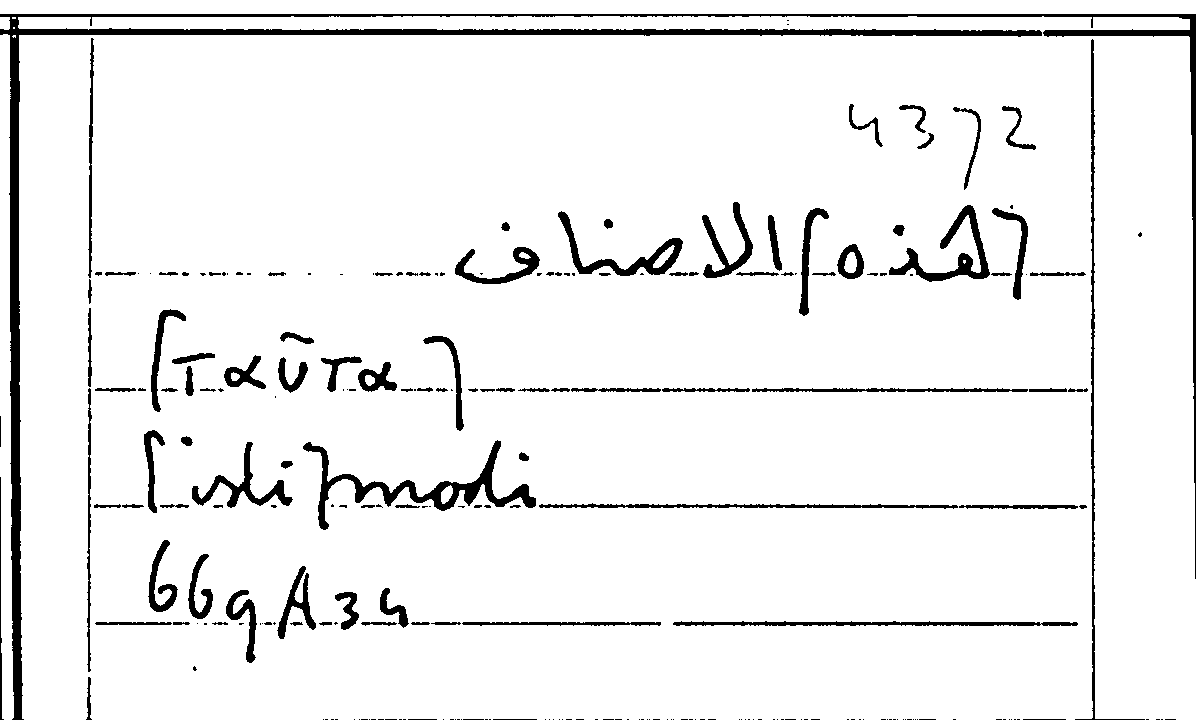 4372
[هذه] الاصناف
[ταῦτα]
[isti] modi
669A34